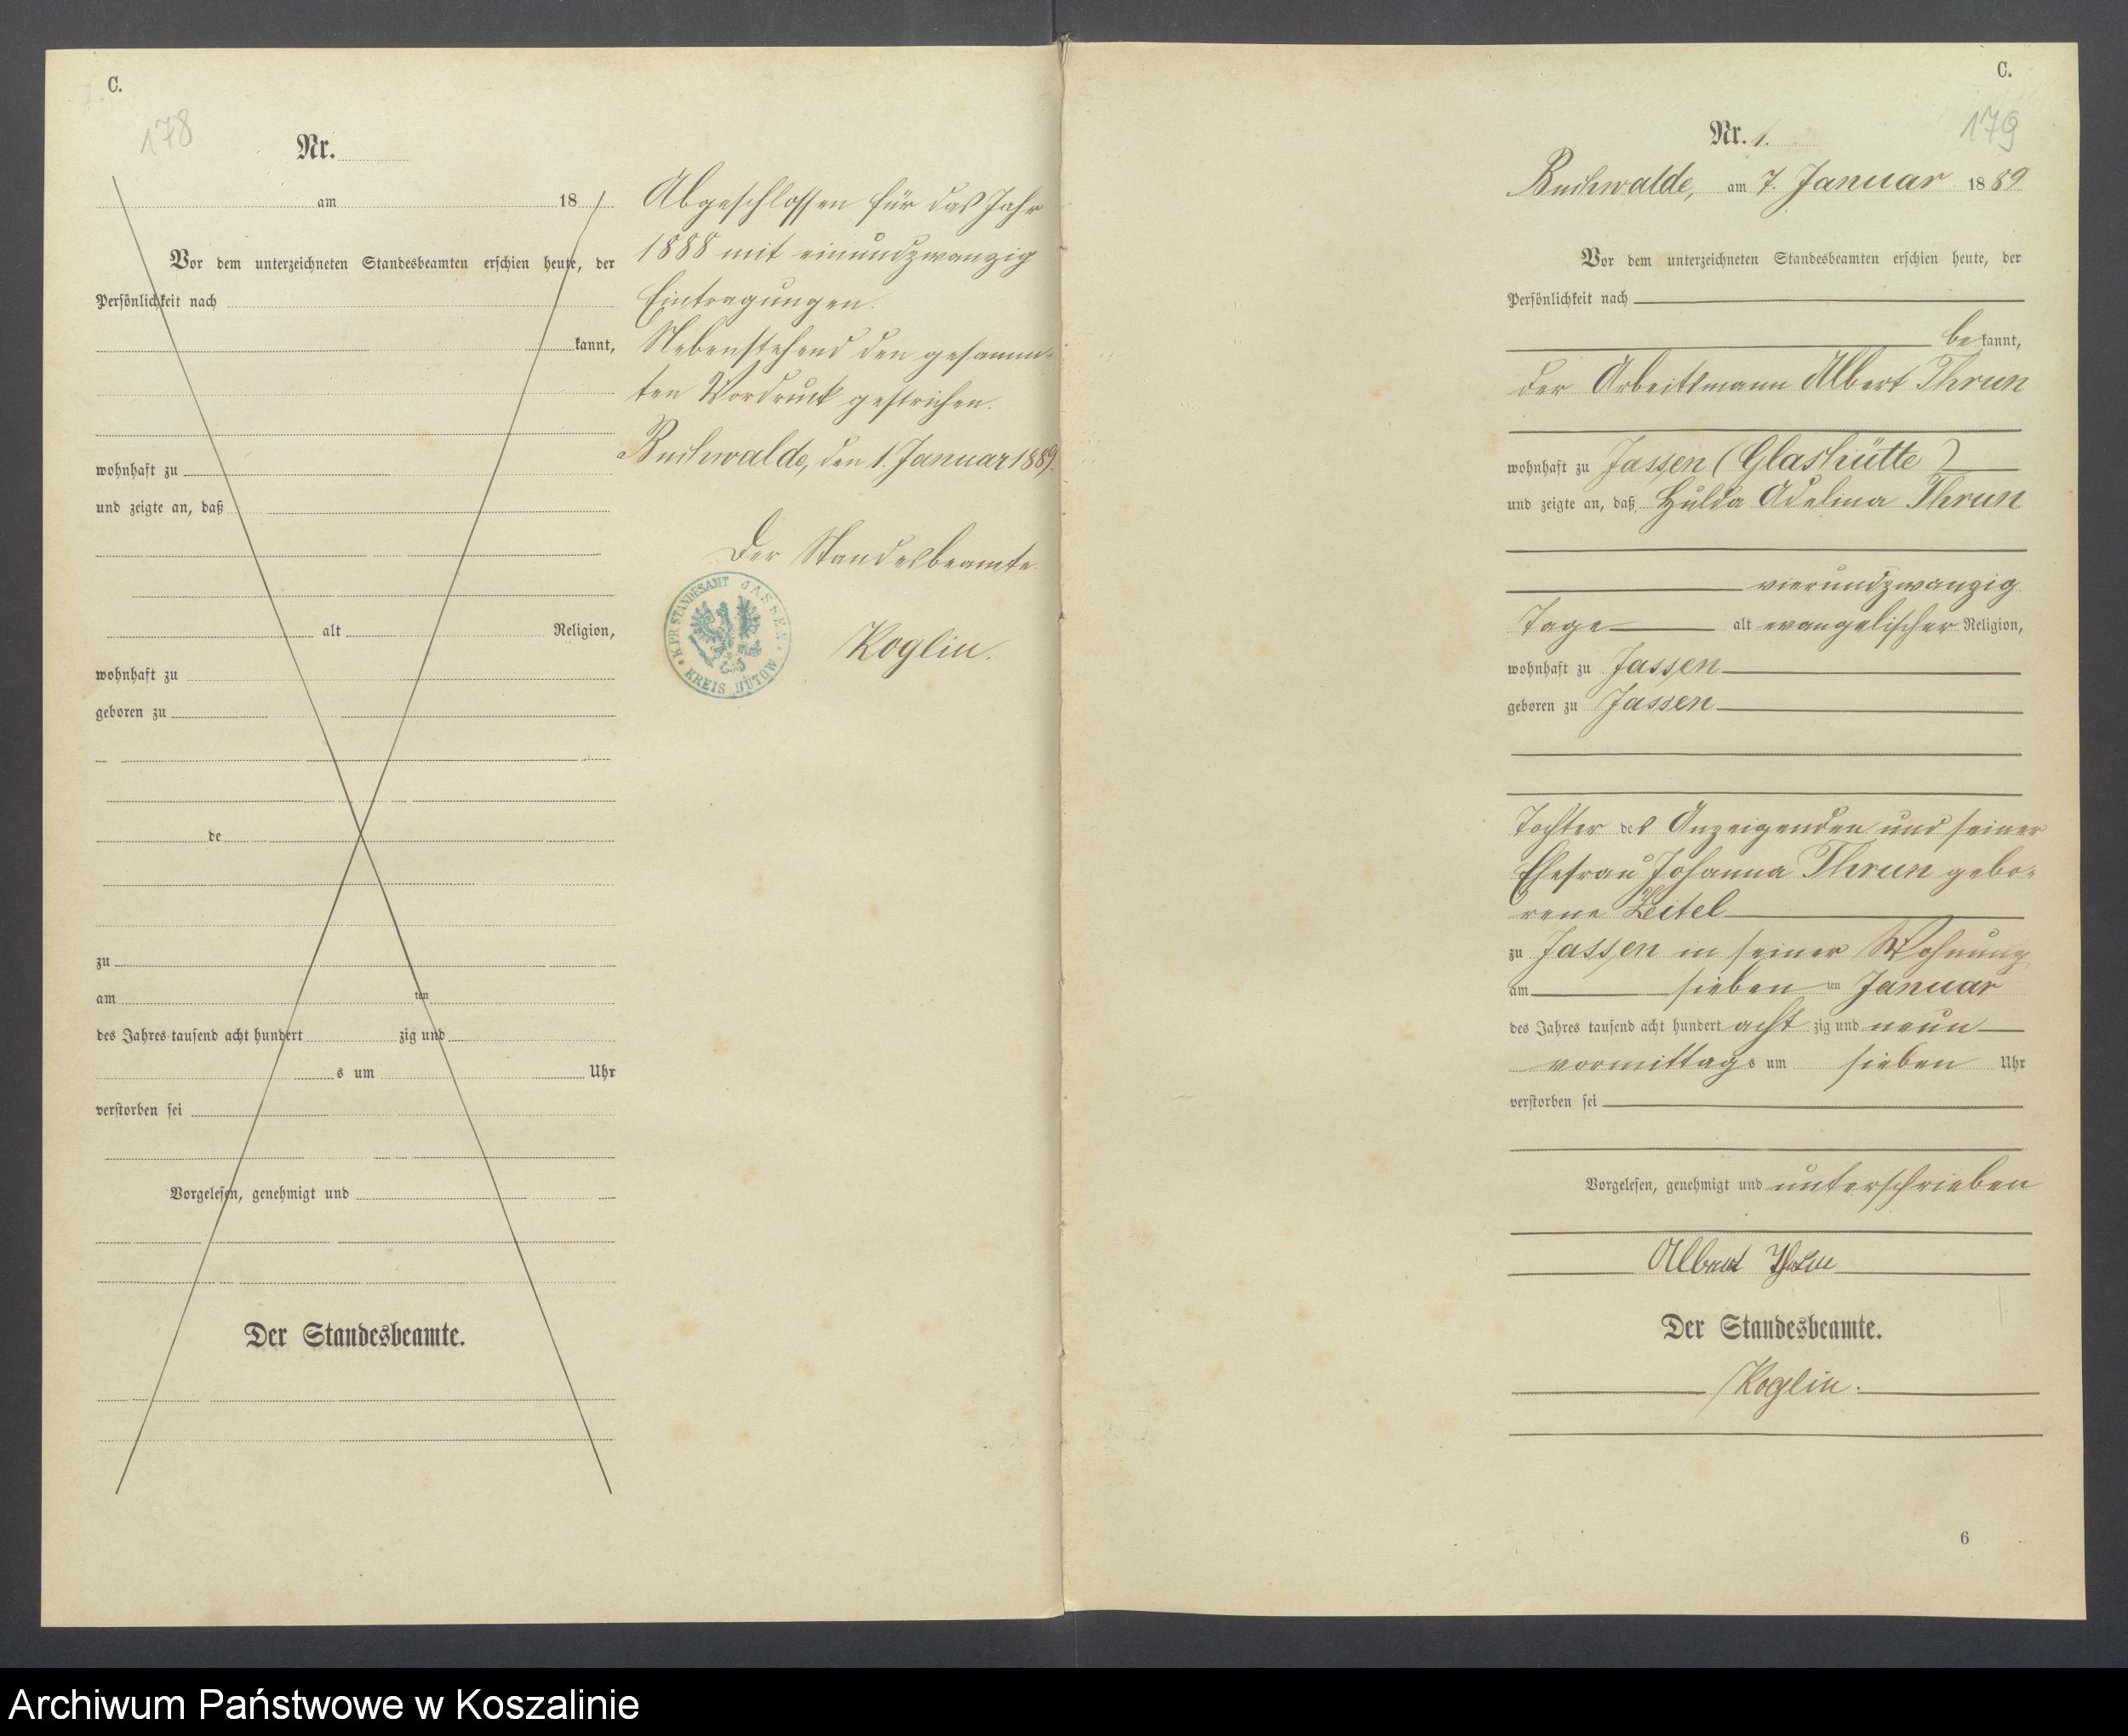 C.
178
Nr.
am 18
Vor dem unterzeichneten Standesbeamten erschien heute, der
Persönlichkeit nach
kannt,
wohnhaft zu
und zeigte an, daß
alt Religion,
wohnhaft zu
geboren zu
de
zu
am ten
des Jahres tausend acht hundert zig und
s um Uhr
verstorben sei
Vorgelesen, genehmigt und
Der Standesbeamte.
Abgeschlossen für das Jahr
1888 mit einundzwanzig
Eintragungen.
Nebenstehend den gesamm-
ten Vordruck gestrichen.
Buchwalde, den 1. Januar 1889.
Der Standesbeamte.
K. PR. STANDESAMT JASSEN
KREIS BÜTOW
Koglin.
C.
179
Nr. 1.
Buchwalde, am 7. Januar 1889
Vor dem unterzeichneten Standesbeamten erschien heute, der
Persönlichkeit nach
bekannt,
der Arbeitsmann Albert Thrun
wohnhaft zu Jassen (Glashütte)
und zeigte an, daß Hulda Adelina Thrun
vierundzwanzig
Tage alt evangelischer Religion,
wohnhaft zu Jassen
geboren zu Jassen
Tochter des Anzeigenden und seiner
Ehefrau Johanna Thrun gebo-
rene Zeitel
zu Jassen in seiner Wohnung
am sieben ten Januar
des Jahres tausend acht hundert acht zig und neun
vormittags um sieben Uhr
verstorben sei
Vorgelesen, genehmigt und unterschrieben
Albert
Der Standesbeamte.
Koglin.
6
Archiwum Państwowe w Koszalinie